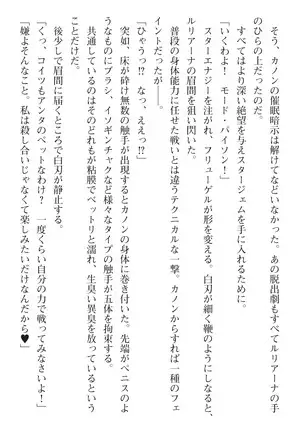 そう、カノンの催眠暗示は解けてなどいなかった。あの脱出劇もすべてルリアーナの手
のひらの上だったのだ。
すべてはより深い絶望を与えスタージェムを手に入れるために。
「いくわよ！　モード・パイソン！」
スターエナジーを注がれ、フリューゲルが形を変える。白刃が細い鞭のようにしなりル
ルリアーナの眉間を狙い閃いた。
普段の身体能力に任せた戦いとは違うテクニカルな一撃。カノンからすれば一種のフェ
イントだったが――。
「ひゃうっ!?　な、ええっ!?」
突如、床が砕け無数の触手が出現するとカノンの身体に巻き付いた。先端がペニスのよ
うなものにブラシ、イソギンチャクなど様々なタイプの触手が五体を拘束する。
共通しているのはそのどれもが粘膜でベットリと濡れ、生臭い異臭を放っているという
ことだけだ。
後少しで眉間に届くところで白刃が静止する。
「くっ、コイツもアンタのペットなわけ？　一度くらい自分の力で戦ってみなさいよ！」
「嫌よそんなこと。私は殺し合いじゃなくて楽しみたいだけなんだから♥」